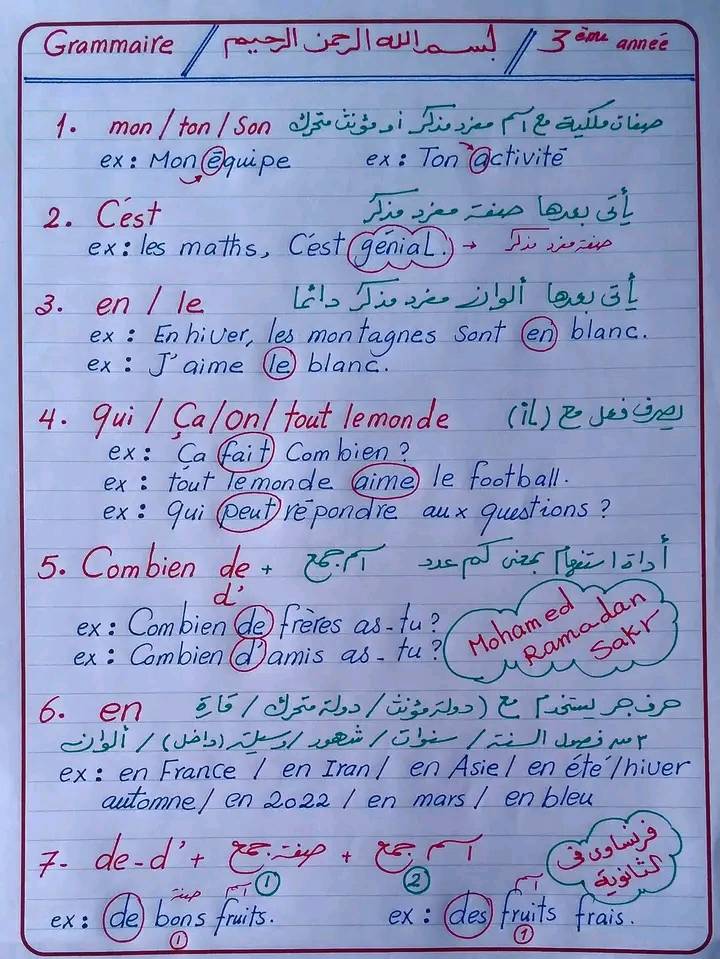 Grammaire / بسم الله الرحمن الرحيم // 3ème année
1. mon / ton / Son صفات ملكية مع اسم مفرد مذكر أو مؤنث متحرك
ex : Mon équipe ex : Ton activité
2. C'est يأتى بعدها صفة مفرد مذكر
ex : les maths, C'est génial. → صفة مفرد مذكر
3. en / le يأتى بعدها ألوان مفرد مذكر دائما
ex : En hiver, les montagnes sont en blanc.
ex : J'aime le blanc.
4. qui / Ça / on / tout le monde يصرف فعل مع (il)
ex : Ça fait Combien ?
ex : tout le monde aime le football.
ex : qui peut répondre aux questions ?
5. Combien de + اسم جمع أداة استفهام بمعنى كم عدد
d'
ex : Combien de frères as-tu ?
ex : Combien d'amis as-tu ?
Mohamed
Ramadan
Sakr
6. en حرف جر يستخدم مع (دولة مؤنث / دولة متحرك / قارة
٣ من فصول السنة / سنوات / شهور / وسيلة (داخل) / ألوان
ex : en France / en Iran / en Asie / en été / hiver
automne / en 2022 / en mars / en bleu
7- de-d' + صفة جمع + اسم جمع
1 2
فرنساوى فى
الثانوية
صفة اسم اسم
ex : de bons fruits. ex : des fruits frais.
1 1